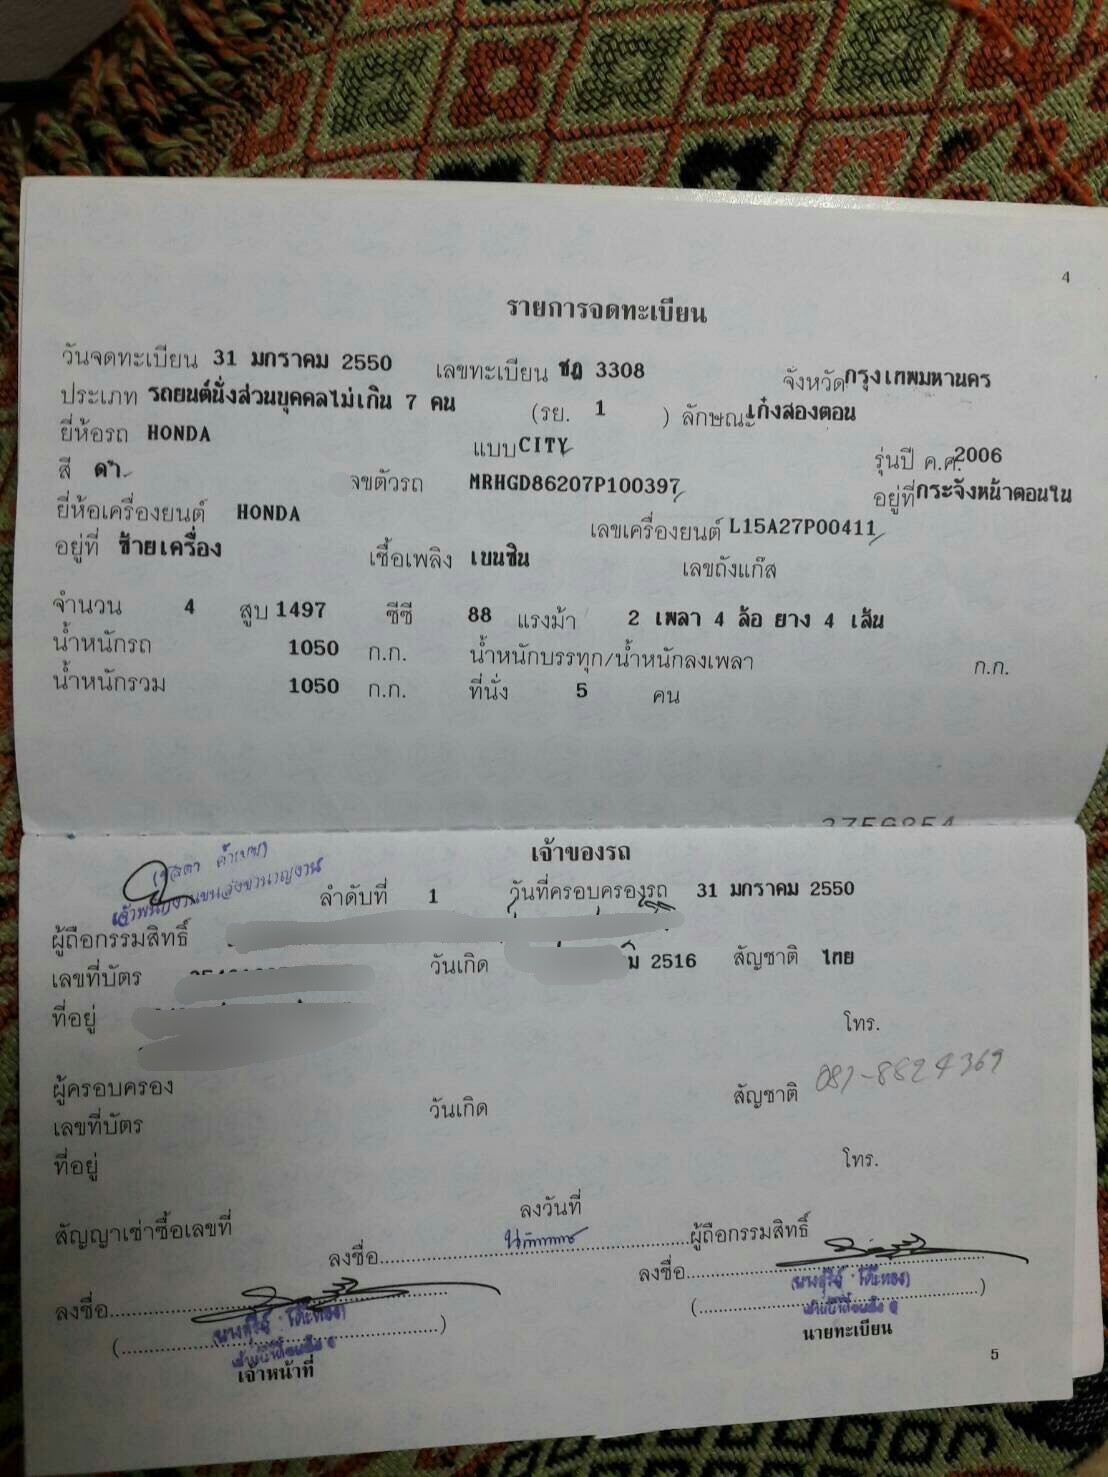 4
รายการจดทะเบียน
วันจดทะเบียน 31 มกราคม 2550 เลขทะเบียน ชฎ 3308 จังหวัด กรุงเทพมหานคร
ประเภท รถยนต์นั่งส่วนบุคคลไม่เกิน 7 คน (รย. 1 ) ลักษณะ เก๋งสองตอน
ยี่ห้อรถ HONDA แบบ CITY รุ่นปี ค.ศ. 2006
สี ดำ ขตัวรถ MRHGD86207P100397 อยู่ที่ กระจังหน้าตอนใน
ยี่ห้อเครื่องยนต์ HONDA เลขเครื่องยนต์ L15A27P00411
อยู่ที่ ซ้ายเครื่อง เชื้อเพลิง เบนซิน เลขถังแก๊ส
จำนวน 4 สูบ 1497 ซีซี 88 แรงม้า 2 เพลา 4 ล้อ ยาง 4 เส้น
น้ำหนักรถ 1050 ก.ก. น้ำหนักบรรทุก/น้ำหนักลงเพลา ก.ก.
น้ำหนักรวม 1050 ก.ก. ที่นั่ง 5 คน
เจ้าของรถ
ลำดับที่ 1 วันที่ครอบครองรถ 31 มกราคม 2550
ผู้ถือกรรมสิทธิ์
เลขที่บัตร วันเกิด 2516 สัญชาติ ไทย
ที่อยู่ โทร.
081-8824369
ผู้ครอบครอง
เลขที่บัตร วันเกิด สัญชาติ
ที่อยู่ โทร.
สัญญาเช่าซื้อเลขที่ ลงวันที่
ลงชื่อ ผู้ถือกรรมสิทธิ์
ลงชื่อ ลงชื่อ
เจ้าหน้าที่ นายทะเบียน
5